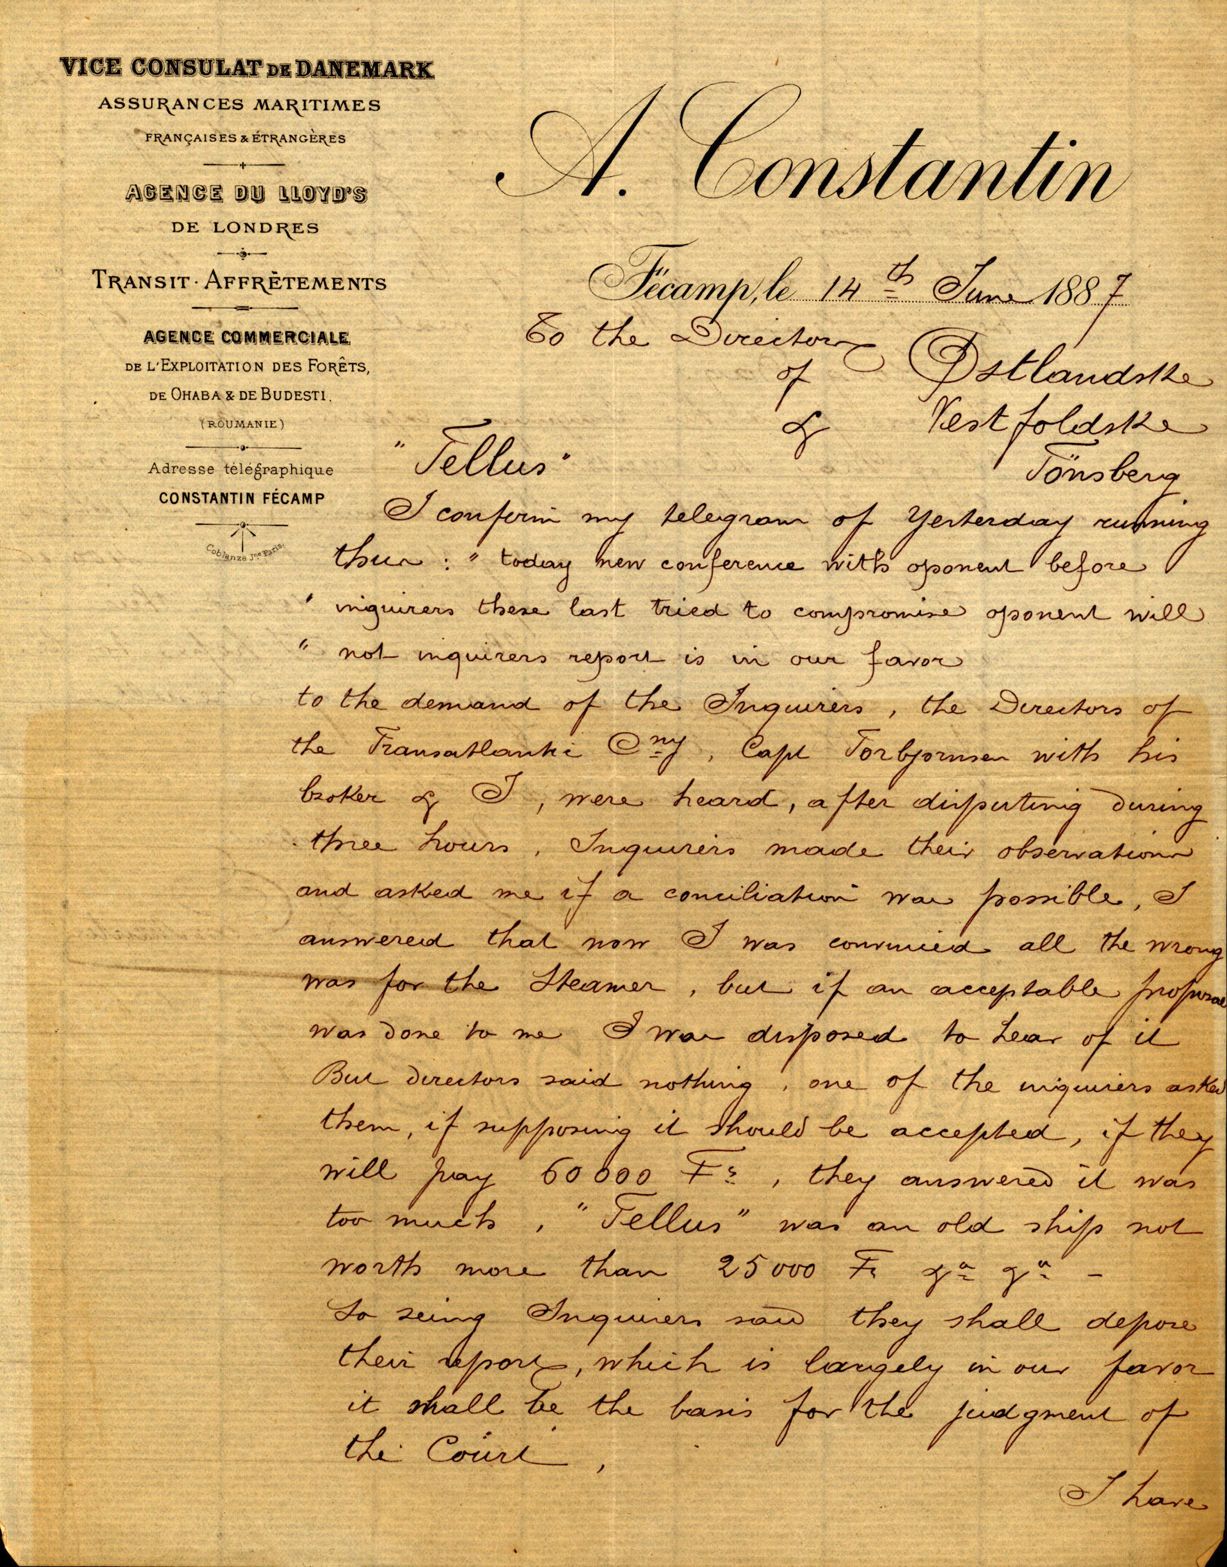 VICE CONSULAT DE DANEMARK
ASSURANCES MARITIMES
FRANÇAISES & ÉTRANGÈRES
AGENCE DU LLOYD'S
DE LONDRES
TRANSIT · AFFRÈTEMENTS
AGENCE COMMERCIALE
DE L'EXPLOITATION DES FORÊTS,
DE OHABA & DE BUDESTI.
(ROUMANIE)
Adresse télégraphique
CONSTANTIN FÉCAMP
Coblenze Jne Paris.
A. Constantin
Fécamp, le 14th June 1887
To the Directors
of Østlandske
& Vestfoldske
"Tellus" Tönsberg
I confirm my telegram of Yesterday running
thus : " today new conference with oponent before
" inquirers these last tried to compromise oponent will
" not inquirers report is in our favor
to the demand of the Inquirers, the Directors of
the Transatlantic Cny, Capt Torbjornsen with his
broker & I, were heard, after disputing during
three hours, Inquirers made their observations
and asked me if a conciliation was possible, I
answered that now I was convinced all the wrong
was for the Steamer, but if an acceptable proposal
was done to me I was disposed to hear of it
But directors said nothing, one of the inquirers asked
them, if supposing it should be accepted, if they
will pay 60000 Frs, they answered it was
too much, "Tellus" was an old ship not
worth more than 25000 Fr &a &a -
So seing Inquirers said they shall depose
their report, which is largely in our favor
it shall be the basis for the judgment of
the Court,
I have